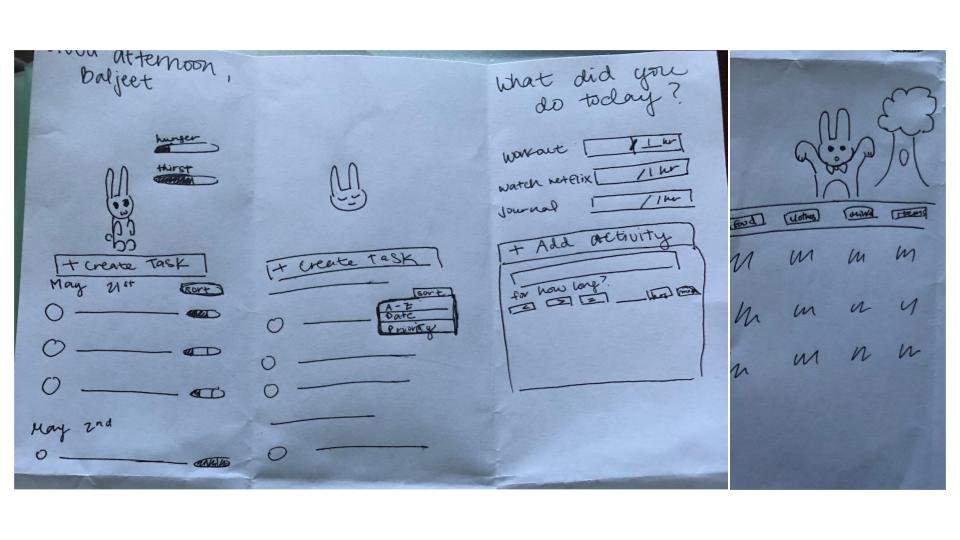 Good afternoon,
Baljeet
hunger
thirst
+ Create Task
May 21st
sort
May 2nd
+ Create Task
sort
A-Z
Date
Priority
What did you
do today?
Workout / 1 hr
Watch netflix / 1 hr
Journal / 1 hr
+ Add activity
for how long?
food clothes items